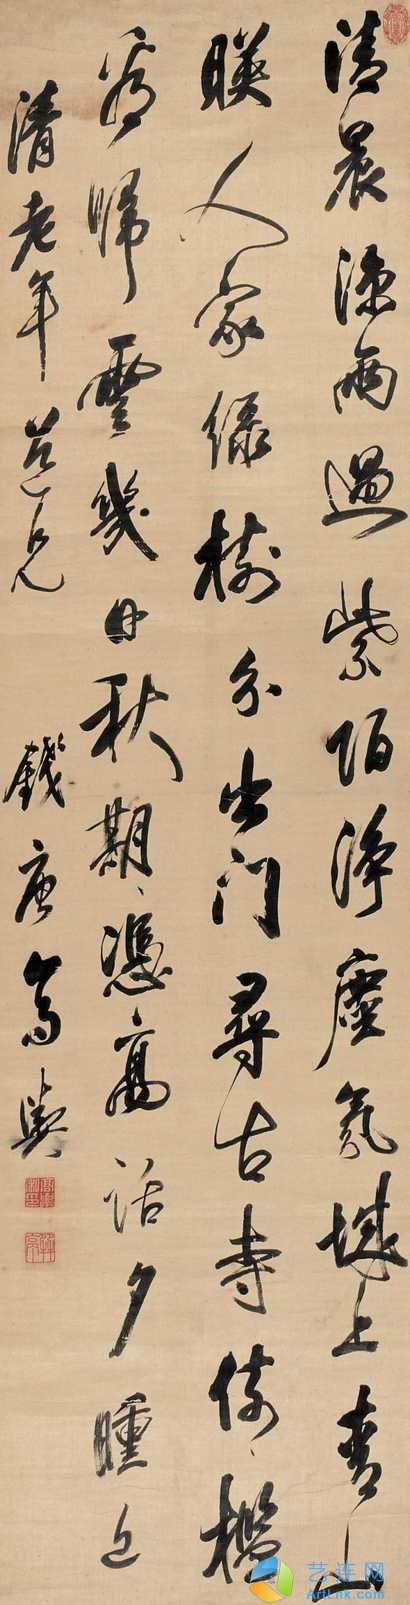 清晨涼雨過紫陌淨塵氛城上青山
暎人家綠樹分出門尋古寺倚檻
看歸雲幾日秋期憑高話夕曛近
清老年道兄 錢唐高輿
艺连网
ArtLnk.com